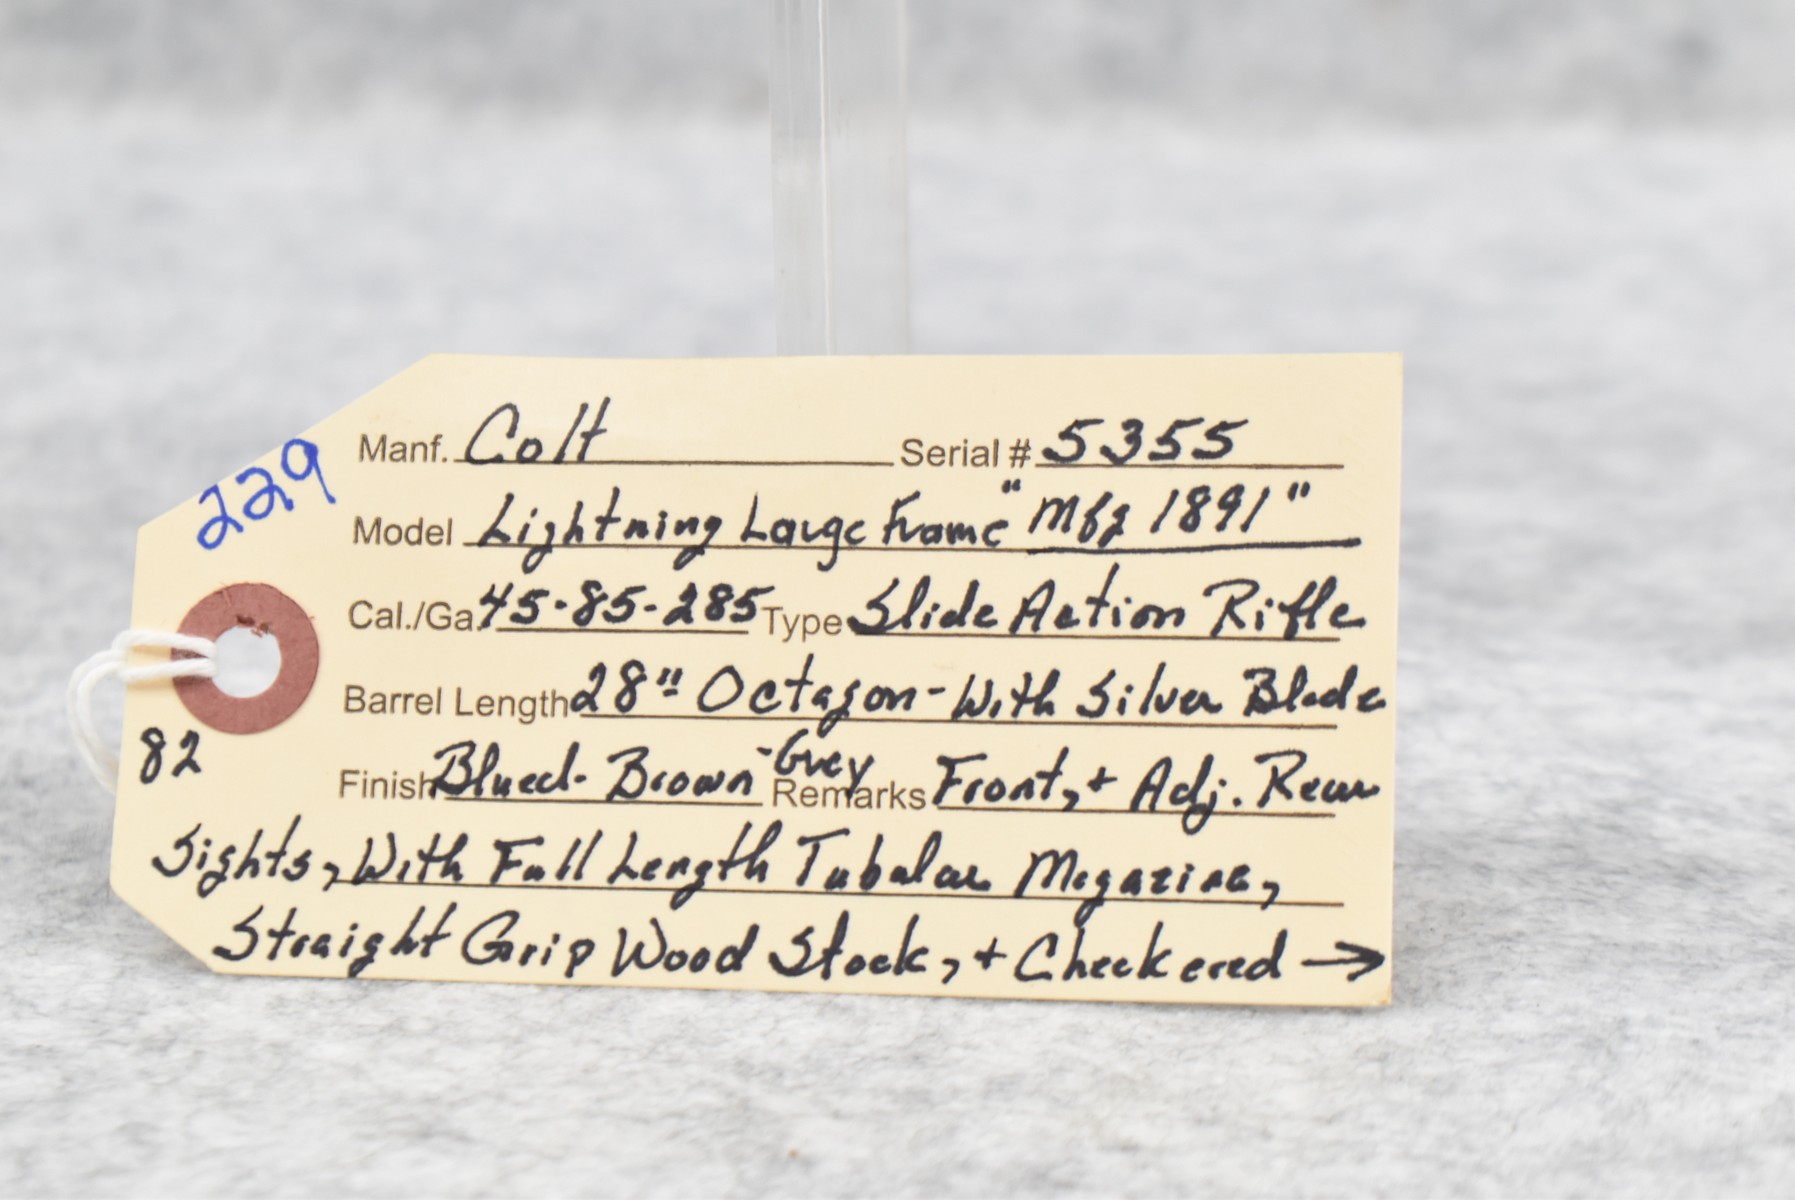 229
Manf. Colt Serial # 5355
Model Lightning Large Frame "Mfg 1891"
Cal./Ga. 45-85-285 Type Slide Action Rifle
Barrel Length 28" Octagon - With Silver Blade
82
Finish Blued - Brown - Grey Remarks Front, + Adj. Rear
Sights, With Full Length Tubular Magazine,
Straight Grip Wood Stock, + Checkered →